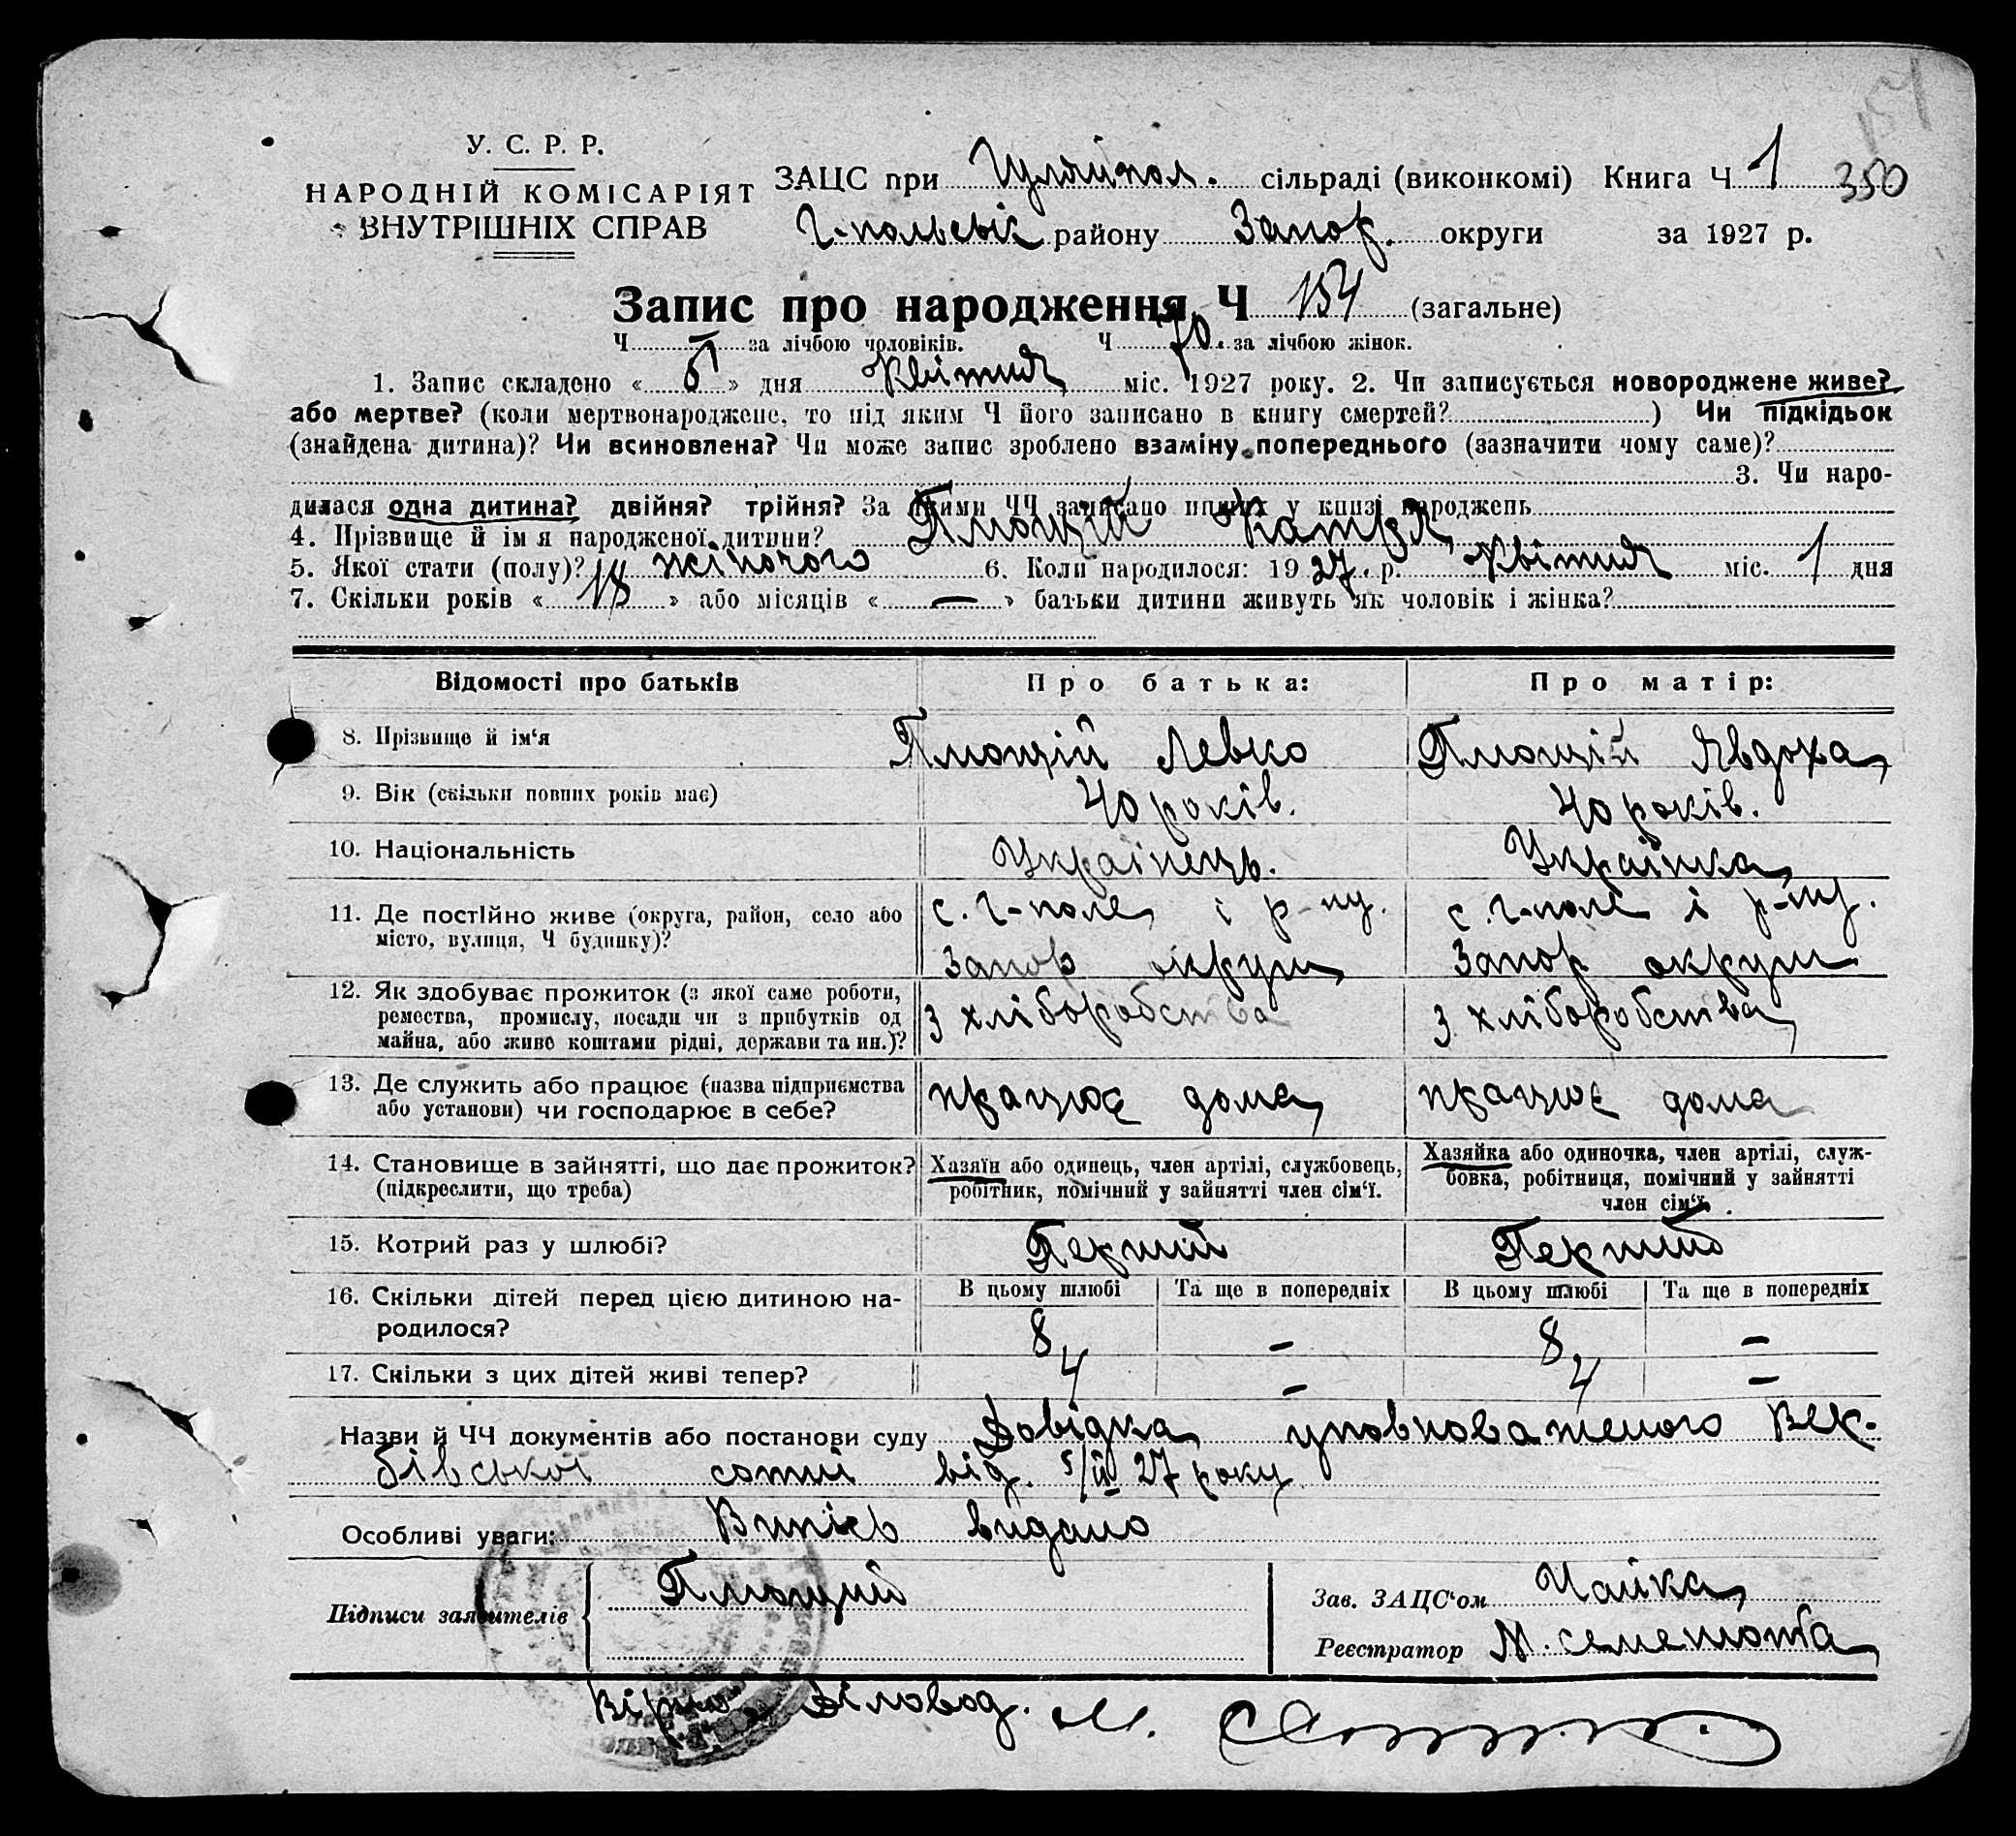 154
У. С. Р. Р.
НАРОДНІЙ КОМІСАРІЯТ
ВНУТРІШНІХ СПРАВ
ЗАЦС при Гуляйпол. сільраді (виконкомі) Книга Ч 1 350
Г-польськ району Запор. округи за 1927 р.
Запис про народження Ч 154 (загальне)
Ч — за лічбою чоловіків. Ч 70. за лічбою жінок.
1. Запис складено « 5 » дня Квітня міс. 1927 року. 2. Чи записується новороджене живе?
або мертве? (коли мертвонароджене, то під яким Ч його записано в книгу смертей? ) Чи підкідьок
(знайдена дитина)? Чи всиновлена? Чи може запис зроблено взаміну попереднього (зазначити чому саме)?
3. Чи наро-
дилася одна дитина? двійня? трійня? За якими ЧЧ записано инших у книзі народжень
4. Прізвище й ім я народженої дитини? Плющій Катря
5. Якої стати (полу)? жіночого 6. Коли народилося: 19 27 р. Квітня міс. 1 дня
7. Скільки років « 18 » або місяців « — » батьки дитини живуть як чоловік і жінка?
Відомості про батьків Про батька: Про матір:
8. Прізвище й ім‘я Плющій Левко Плющій Явдоха
9. Вік (скільки повних років має) 40 років. 40 років.
10. Національність Українець. Українка
11. Де постійно живе (округа, район, село або с. Г-поле і р-ну. с. Г-поле і р-ну.
місто, вулиця, Ч будинку)? Запор округи Запор округи
12. Як здобуває прожиток (з якої саме роботи,
ремества, промислу, посади чи з прибутків од з хліборобства з хліборобства
майна, або живе коштами рідні, держави та ин.)?
13. Де служить або працює (назва підприємства працює дома працює дома
або установи) чи господарює в себе?
14. Становище в зайнятті, що дає прожиток? Хазяїн або одинець, член артілі, службовець, Хазяйка або одиночка, член артілі, служ-
(підкреслити, що треба) робітник, помічний у зайнятті член сім‘ї. бовка, робітниця, помічний у зайнятті
член сім‘ї.
15. Котрий раз у шлюбі? Перший Перший
16. Скільки дітей перед цією дитиною на- В цьому шлюбі Та ще в попередніх В цьому шлюбі Та ще в попередніх
родилося? 8 — 8 —
17. Скільки з цих дітей живі тепер? 4 — 4 —
Назви й ЧЧ документів або постанови суду Довідка уповноваженого Вер-
бівської сотні від. 5/ІV 27 року
Особливі уваги: Випісь видано
Підписи заявителів Плющий
Зав. ЗАЦС‘ом Чайка
Реєстратор М.
Вірно: Діловод. М.